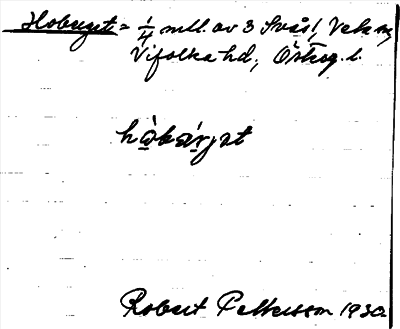 Hoberget = 1/4 mtl. av 3 Svås!, Veta sn,
Vifolka hd., Östrog. l.
hàbærjət
Robert Pettersson 1930